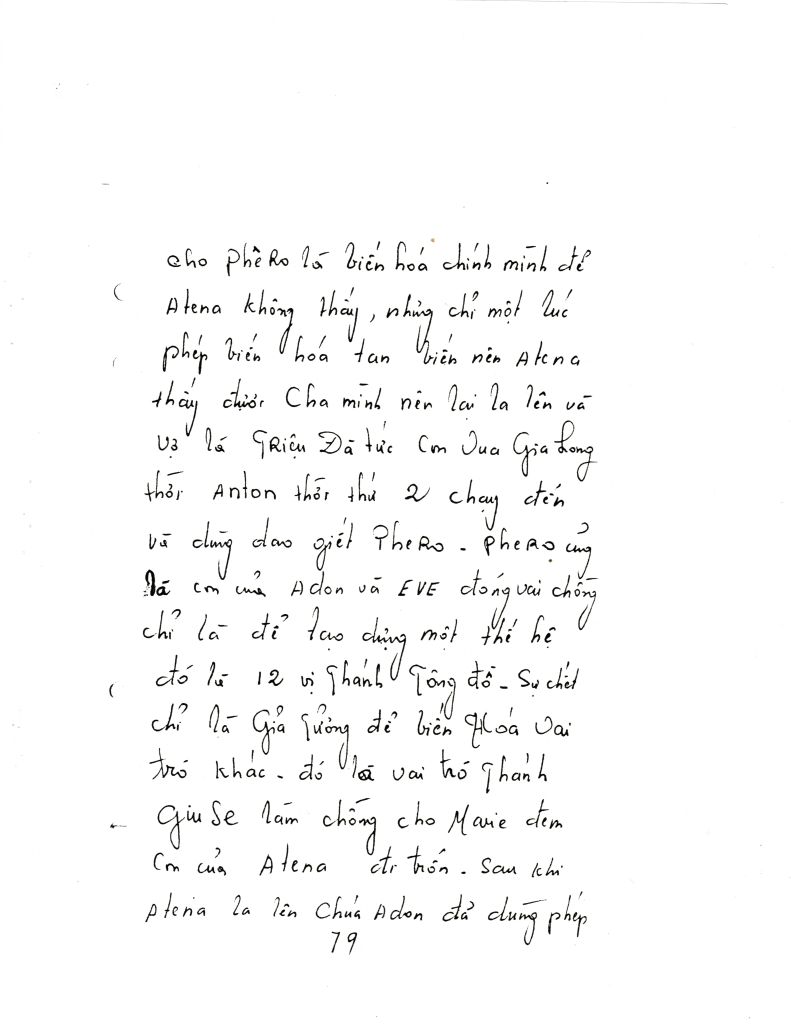 cho PhêRo là biến hoá chính mình để
Atena không thấy, nhưng chỉ một lúc
phép biến hoá tan biến nên Atena
thấy được Cha mình nên lại la lên và
vợ là TRiệu Đà tức Con Vua Gia Long
thời Anton thời thứ 2 chạy đến
và dùng dao giết PheRo - PheRo cũng
là con của Adon và EVE đóng vai chồng
chỉ là để tạo dựng một thế hệ
đó là 12 vị Thánh Tông đồ - Sự chết
chỉ là Giả Tưởng để biến Hoá Vai
trò khác - đó là vai trò Thánh
GiuSe làm chồng cho Marie đem
Con của Atena đi trốn - Sau khi
Atena la lên Chúa Adon đã dùng phép
79